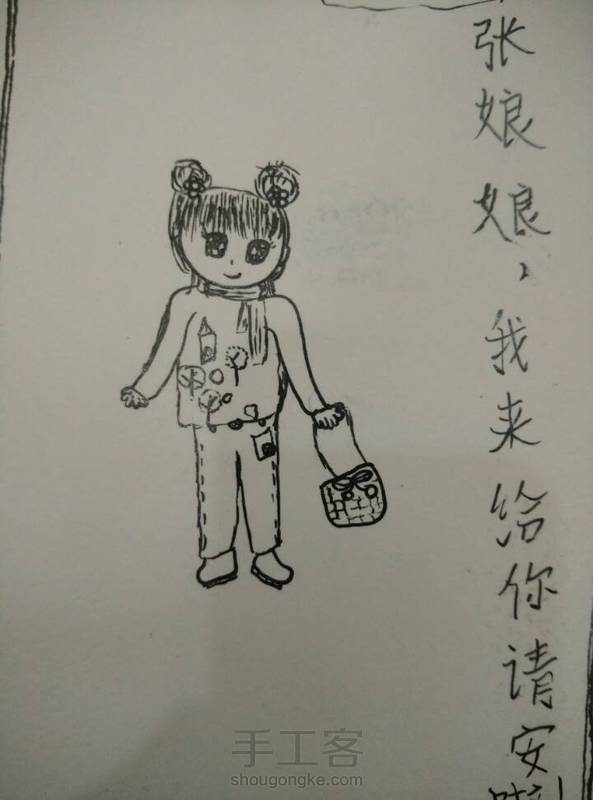 张娘娘，我来给你请安
手工客
shougongke.com